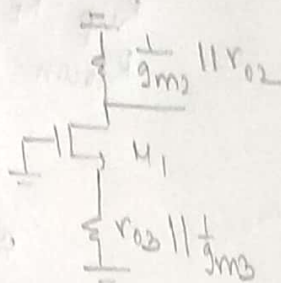 1/gm2 || ro2
M1
ro3 || 1/gm3